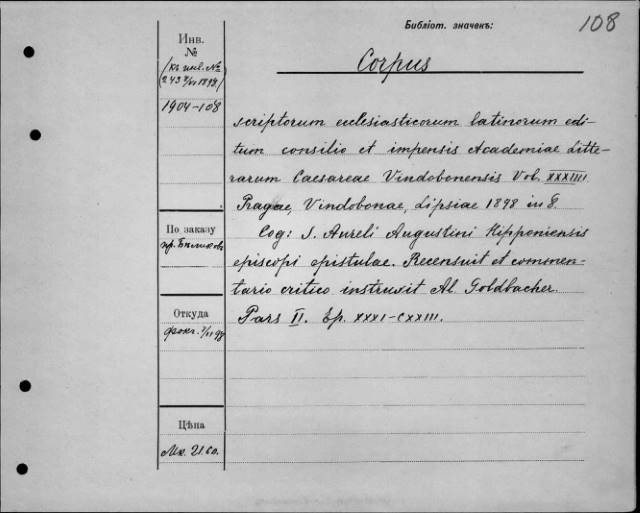 Библіот. значекъ:
108
Инв.
№
(къ инв. №
243 1898)
1904-108
Corpus
scriptorum ecclesiasticorum latinorum edi-
tum consilio et impensis Academiae Litte-
rarum Caesareae Vindobonensis Vol. XXXIIII
Pragae, Vindobonae, Lipsiae 1898 in 8.
Cog: S. Aureli Augustini Hipponiensis
episcopi epistulae. Recensuit et commen-
tario critico instruxit Al. Goldbacher.
Pars II. Ep. XXXI-CXXIII.
По заказу
пр. Бѣликовъ
Откуда
98
Цѣна
Мк. 21.60.